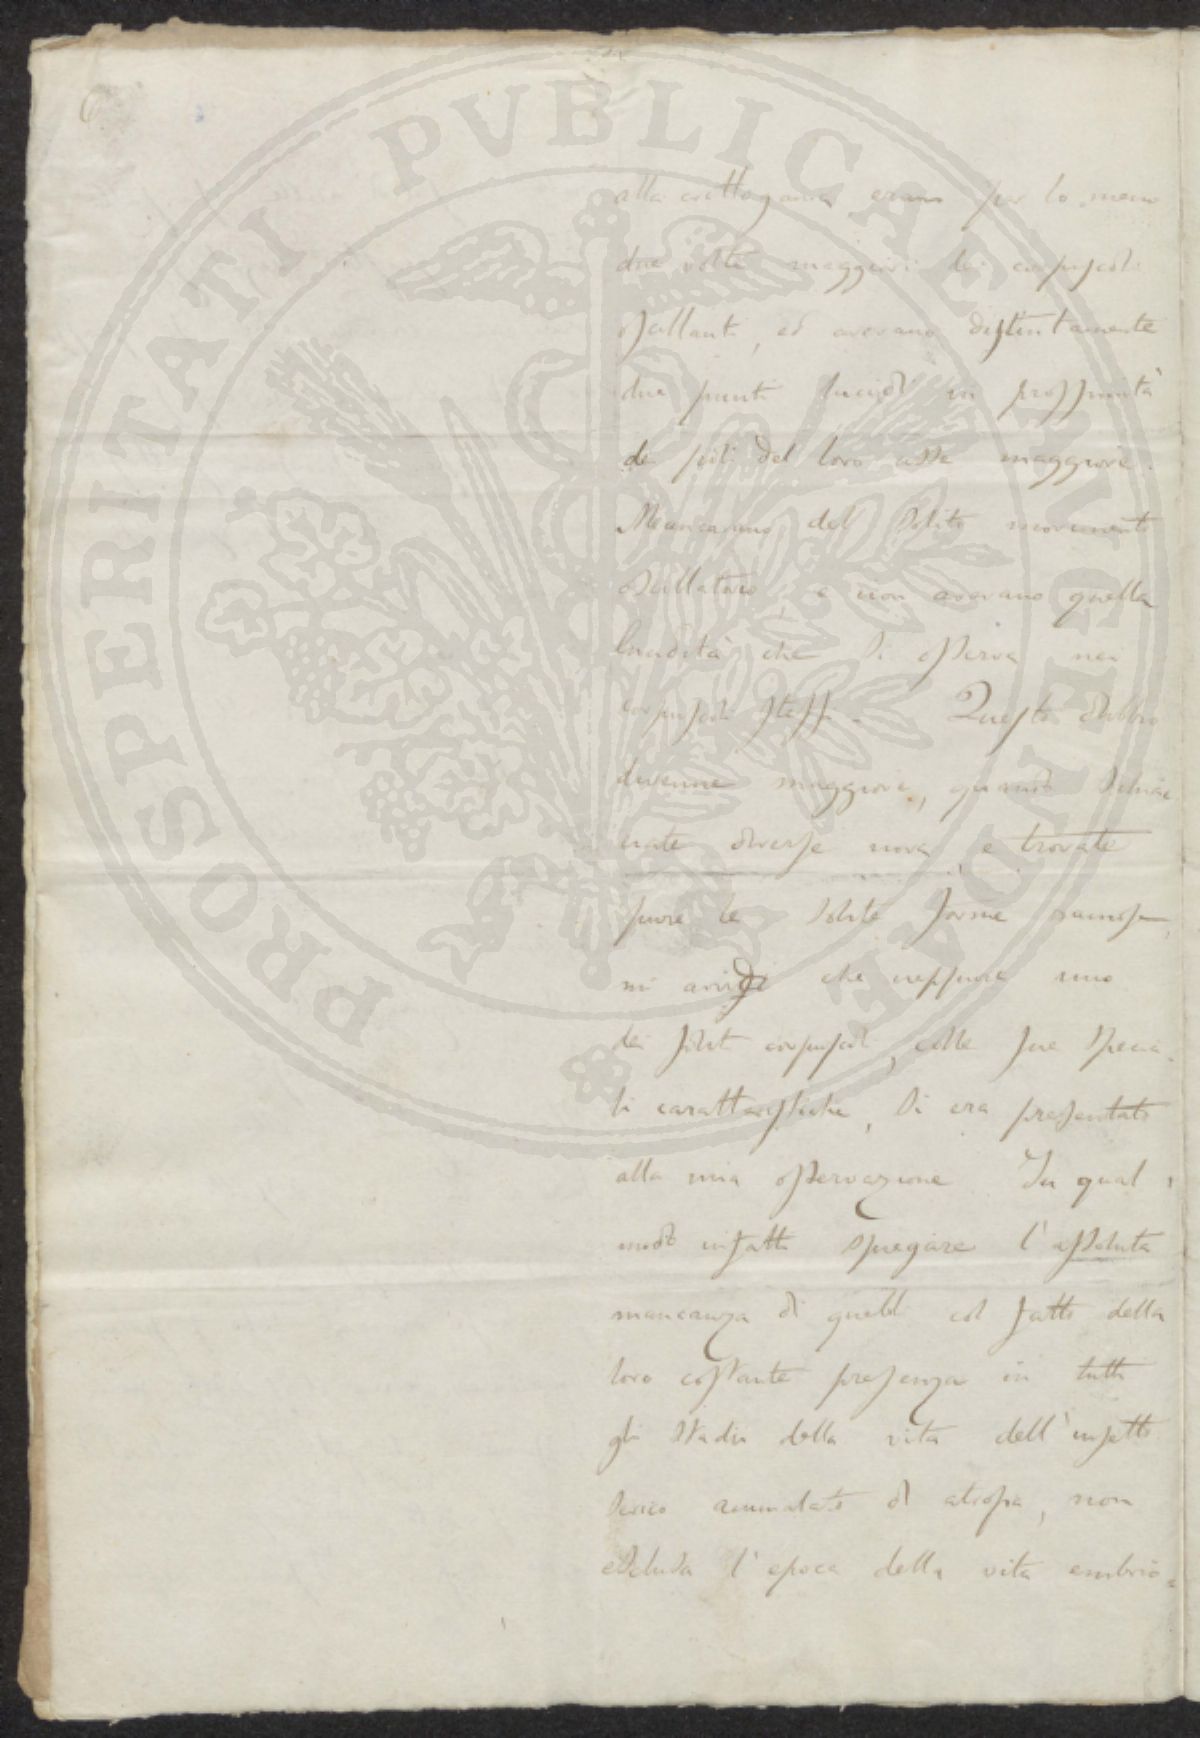 PROSPERITATI PVBLICAE AVGENDAE
alla crittogama erano per lo meno
due volte maggiori dei corpuscoli
oscillanti, ed avevano distintamente
due punti lucidi in prossimità
dei poli del loro asse maggiore.
Mancavano del solito movimento
oscillatorio, e non avevano quella
lucidità che si osserva nei
corpuscoli stessi. Questo dubbio
divenne maggiore, quando schiac
ciate diverse uova, e trovate
pure le solite forme ramose,
mi avvidi che neppure uno
dei soliti corpuscoli, colle sue specia-
li caratteristiche, si era presentato
alla mia osservazione. In qual
modo infatti spiegare l'assoluta
mancanza di quelli col fatto della
loro costante presenza in tutti
gli stadii della vita dell'insetto
serico ammalato di atrofia, non
esclusa l'epoca della vita embrio-